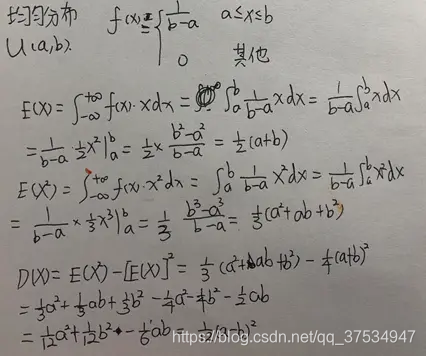 均匀分布 f(x)= { 1/(b-a) a≤x≤b
U(a,b). 0 其他
E(X)=∫_{-∞}^{+∞} f(x)·xdx = ∫_a^b 1/(b-a) xdx = 1/(b-a) ∫_a^b xdx
= 1/(b-a) · 1/2 x²|_a^b = 1/2 × (b²-a²)/(b-a) = 1/2(a+b)
E(X²)=∫_{-∞}^{+∞} f(x)·x²dx = ∫_a^b 1/(b-a) x²dx = 1/(b-a) ∫_a^b x²dx
= 1/(b-a) × 1/3 x³|_a^b = 1/3 (b³-a³)/(b-a) = 1/3(a²+ab+b²)
D(X)= E(X²)-[E(X)]² = 1/3(a²+ab+b²) - 1/4(a+b)²
= 1/3a²+1/3ab+1/3b²-1/4a²-1/4b²-1/2ab
= 1/12a²+1/12b²-1/6ab = 1/12(a-b)²
https://blog.csdn.net/qq_37534947